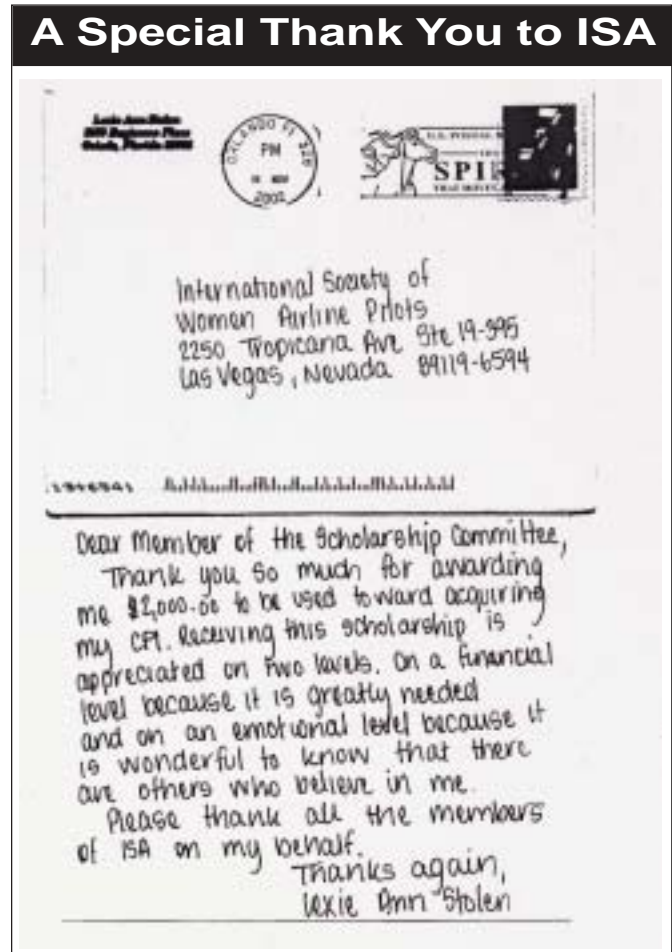 A Special Thank You to ISA
ORLANDO FL 328
PM
NOV
2002
U.S. POSTAL
SPI
International Society of
Women Airline Pilots
2250 Tropicana Ave Ste 19-395
Las Vegas, Nevada 89119-6594
Dear Member of the Scholarship Committee,
Thank you so much for awarding
me $2,000.00 to be used toward acquiring
my CPL. Receiving this scholarship is
appreciated on two levels. On a financial
level because it is greatly needed
and on an emotional level because it
is wonderful to know that there
are others who believe in me.
Please thank all the members
of ISA on my behalf.
Thanks again,
Lexie Ann Stolen